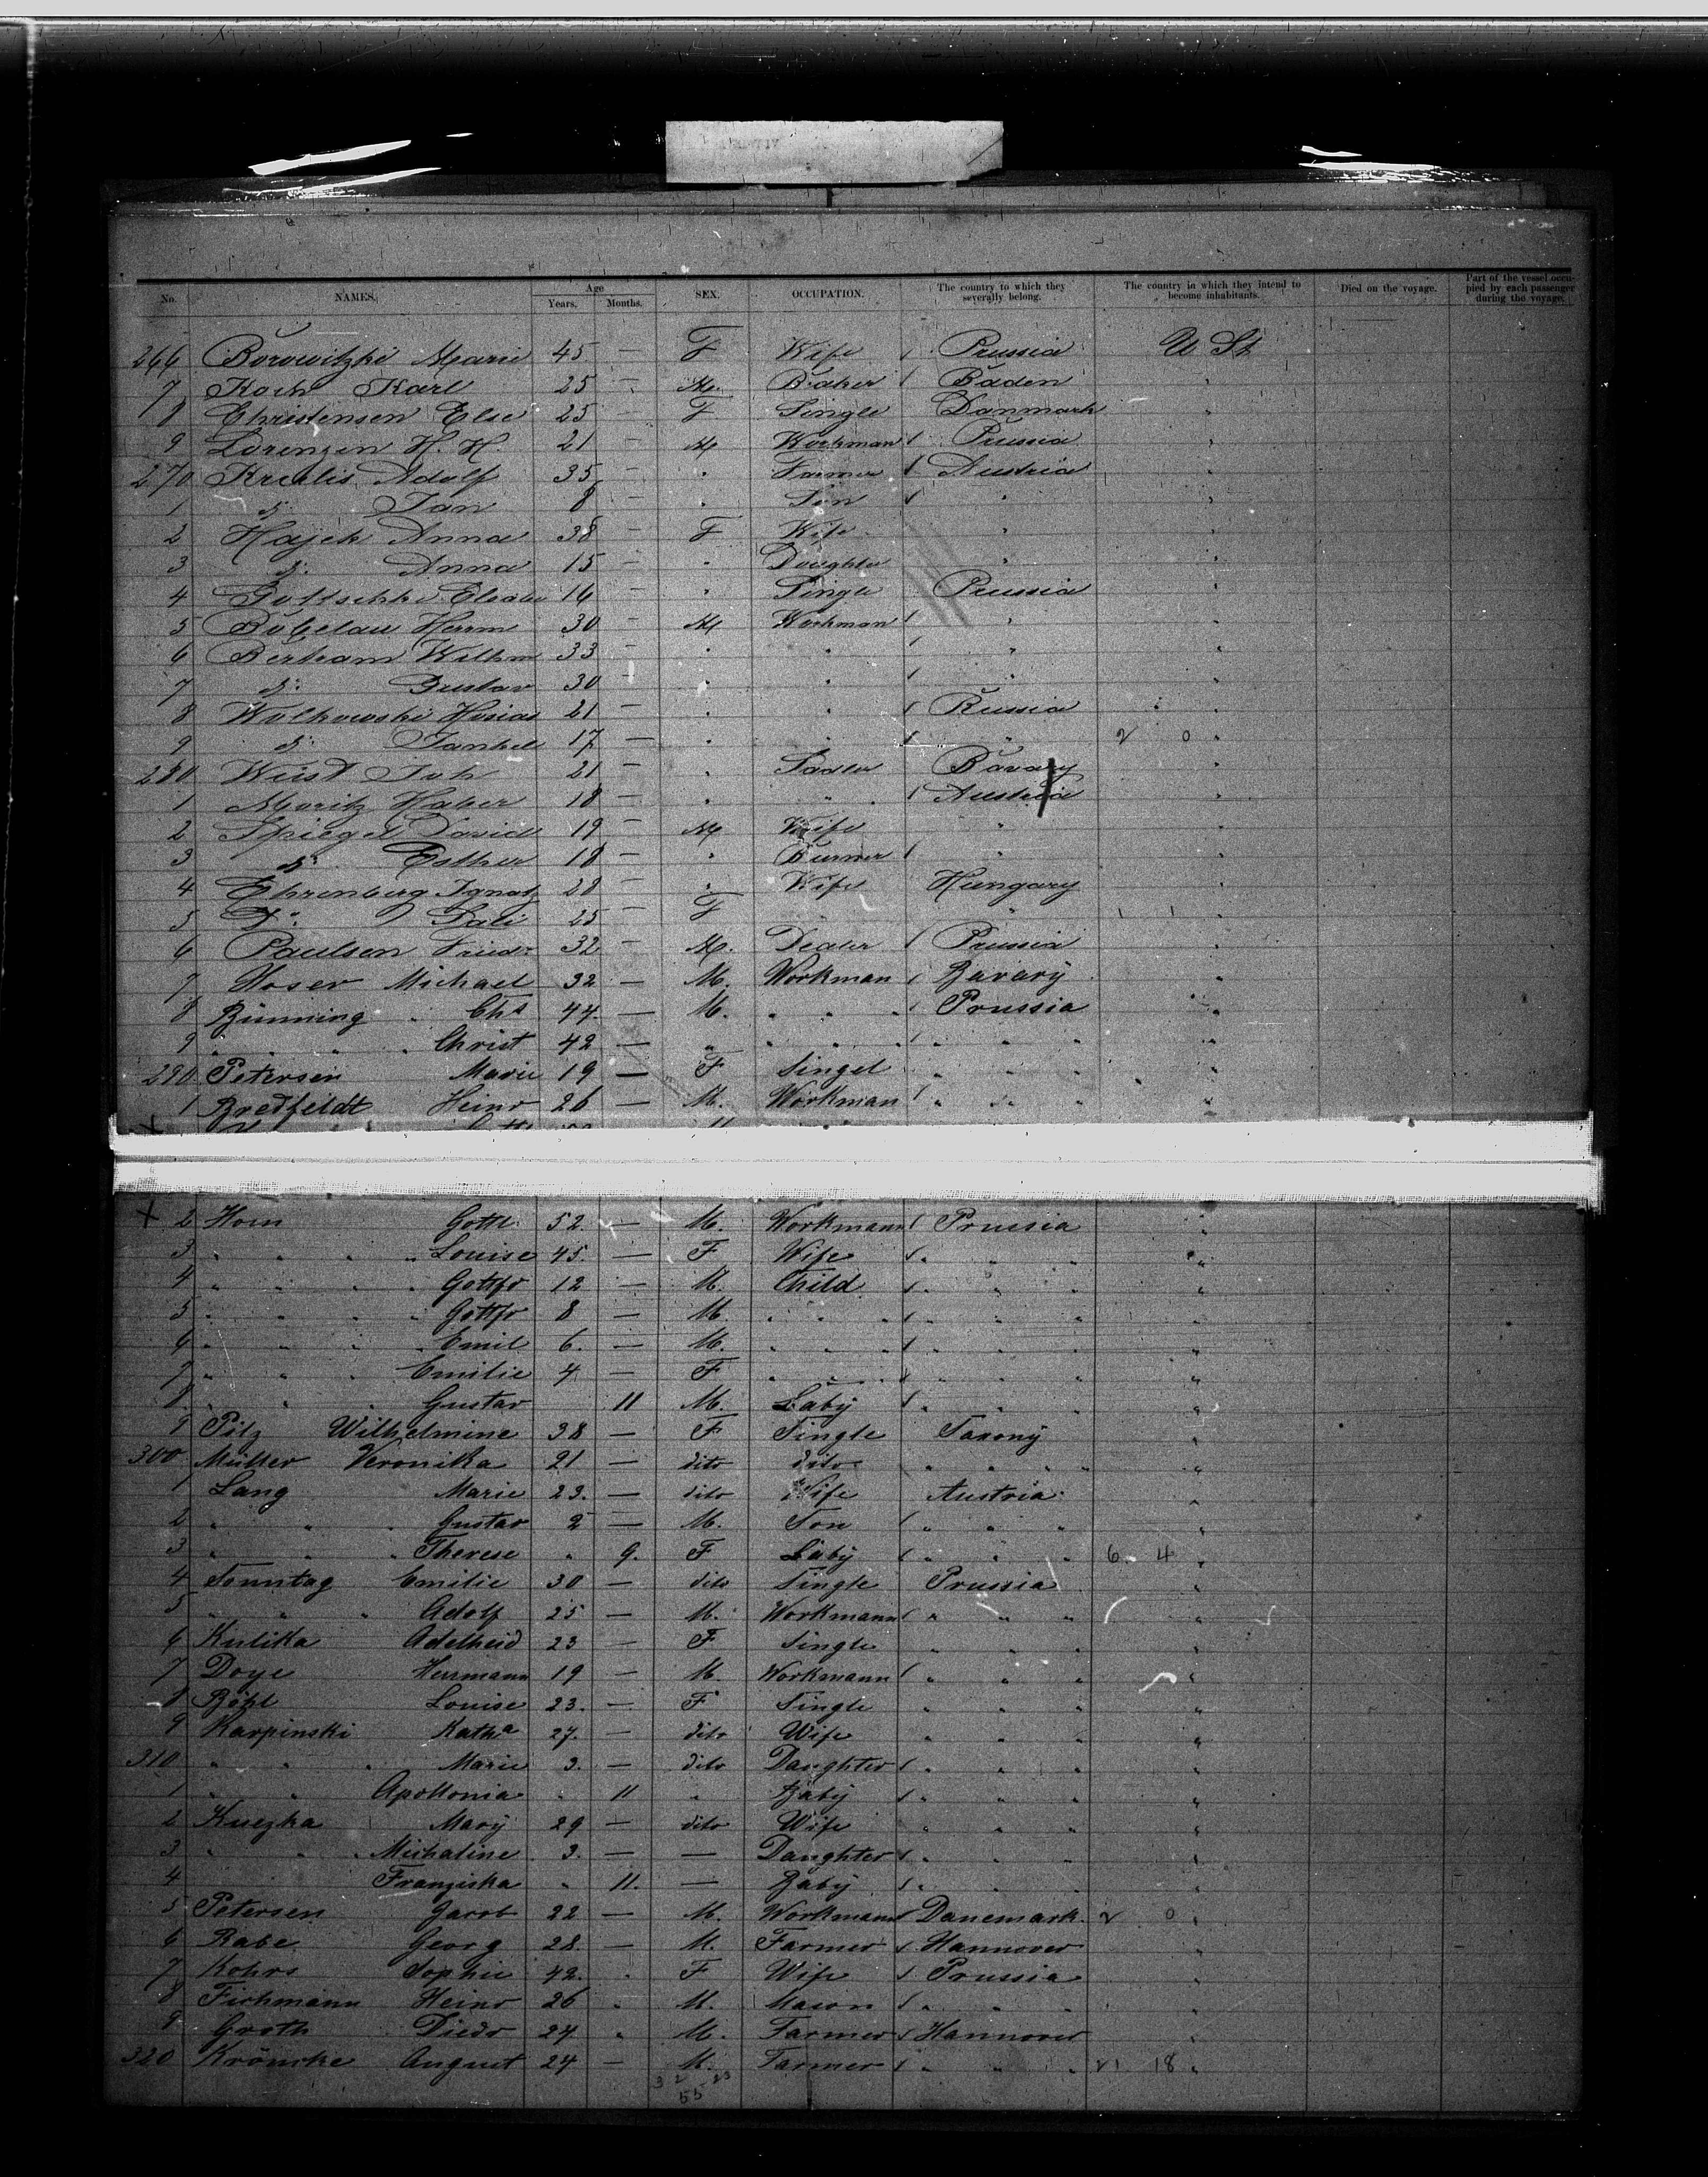 No. NAMES. Age Years. Months. SEX. OCCUPATION. The country to which they severally belong. The country in which they intend to become inhabitants. Died on the voyage. Part of the vessel occupied by each passenger during the voyage.
266 Borowitzki Marie 45 — F Wife Prussia U St
7 Koch Karl 25 — M. Baker Baden "
8 Christensen Else 25 — F Single Danmark "
9 Lorenzen H. H. 21 — M Workman Prussia "
270 Adolf 35 — " Farmer Austria "
1 d: Jan 8 — " Son " "
2 Hajek Anna 38 — F Wife " "
3 d: Anna 15 — " Doughter " "
4 16 — " Single Prussia "
5 Herrm 30 — M Workman " "
6 Bertram Wilhm 33 — " " " "
7 d: Gustav 30 — " " " "
8 Wolkowski 21 — " " Russia "
9 d: Jankel 17 — " " " 2 0 "
280 Wüst Joh 21 — " Sadler Bavary "
1 Moritz Haber 18 — " " Austria "
2 Spiegel David 19 — M Wife " "
3 d: Esther 18 — " " "
4 Ehrenberg Ignatz 28 — " Wife Hungary "
5 D: Sali 25 — F " 1 1 "
6 Paulsen Friedr 32 — M. Dealer Prussia "
7 Moser Michael 32 — M. Workman Bavary "
8 Bünning " Chs 44 — M. " " " Prussia "
9 " " " " Christ 42 — " " " " " " " "
290 Petersen Marie 19 — F Singel " " " "
1 Bredfeldt Heinr 26 — M. Workman " " " "
X 2 Horn Gottl 52. — M. Workmann Prussia "
3 " " " " Louise 45. — F Wife " " " "
4 " " " " Gottfr 12 — M. Child " " " "
5 " " " " Gottfr 8 — M. " " " " " " "
6 " " " " Emil 6. — M. " " " " " " "
7 " " " Emilie 4 — F " " " " " " "
8 " " " Gustav 11 M. Baby " " " "
9 Pilz Wilhelmine 38 — F Single Saxony "
300 Müller Veronika 21 — dito dito " " " " "
1 Lang Marie 23. — dito Wife Austria "
2 " " " Gustav 2 — M. Son " " " "
3 " " " Therese " 9. F Baby " " " 6 4 "
4 Sonntag Emilie 30 — dito Single Prussia "
5 " " " Adolf 25 — M. Workmann " " " "
6 Kulika Adelheid 23 — F Single " " " "
7 Doye Herrmann 19 — M. Workmann " " " "
8 Louise 23. — F Single " " " "
9 Karpinski Katha 27. — dito Wife " " " "
310 " " " Marie 3. — dito Daughter " " " "
1 " " Apollonia " 11 " Baby " " " "
2 Mary 29 — dito Wife " " " "
3 " " " Michaline 3. — — Daughter " " " "
4 Franziska " 11. — Baby " " " "
5 Petersen Jacob 22 — M. Workmann Danemark. 2 0 "
6 Rabe Georg 28. — M. Farmer Hannover "
7 Kohrs Sophie 42. " F Wife Prussia "
8 Heinr 26 " M. Mason " " " "
9 Groth Diedr 24 " M. Farmer Hannover "
320 Kröncke August 24 — M. Farmer " " " 21 18 "
32 23
55